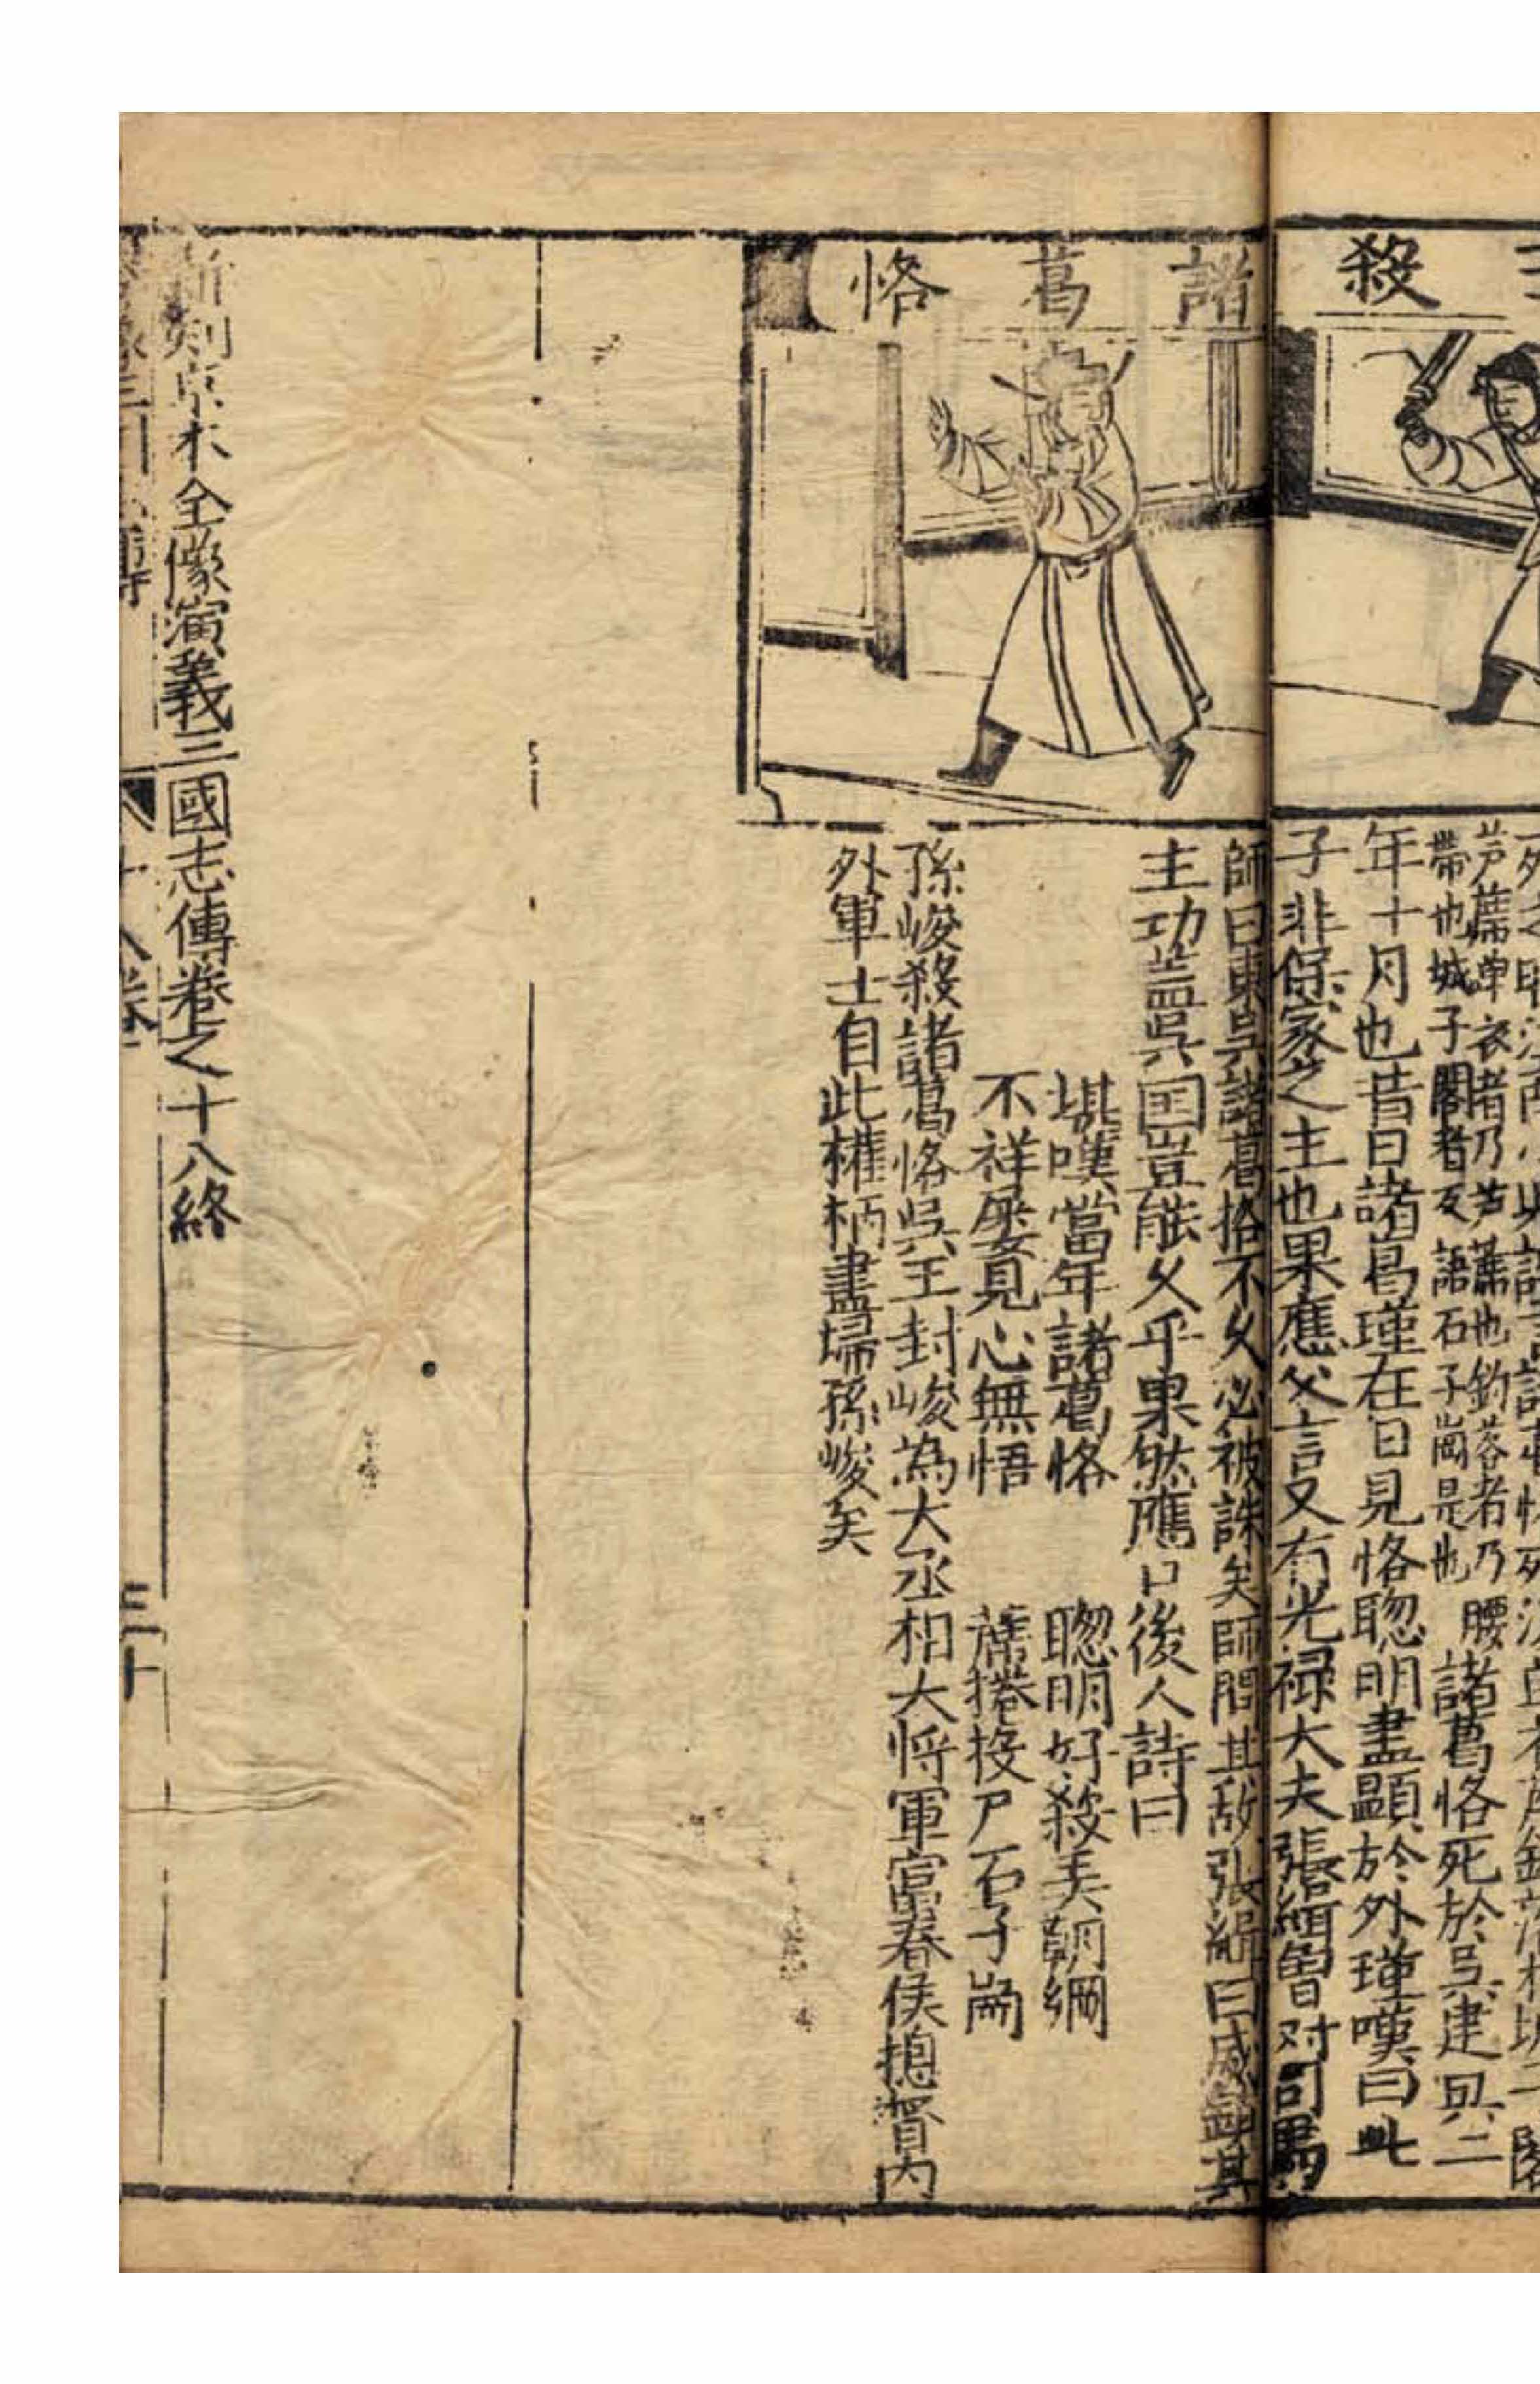 殺
諸葛恪
芦蓆单衣者乃芦蓆也鈎落者乃腰
帶也城子閣者反語石子崗是也
諸葛恪死於吳建興二
年十月也昔日諸葛瑾在日見恪聦明盡顯於外瑾嘆曰此
子非保家之主也果應父言又有光禄大夫張緝曾对司馬
師曰東吳諸葛恪不久必被誅矣師問其故張緝曰威震其
主功盖吳囯豈能久乎果然應口後人詩曰
堪嘆當年諸葛恪 聦明好殺美朝綱
不祥屡見心無悟 蓆捲投尸石子崗
孫峻殺諸葛恪吳王封峻為大丞相大将軍富春侯摠督內
外軍士自此權柄盡歸孫峻矣
新刻京本全像演義三國志傳卷之十八終
三国志傳
十八卷
三十